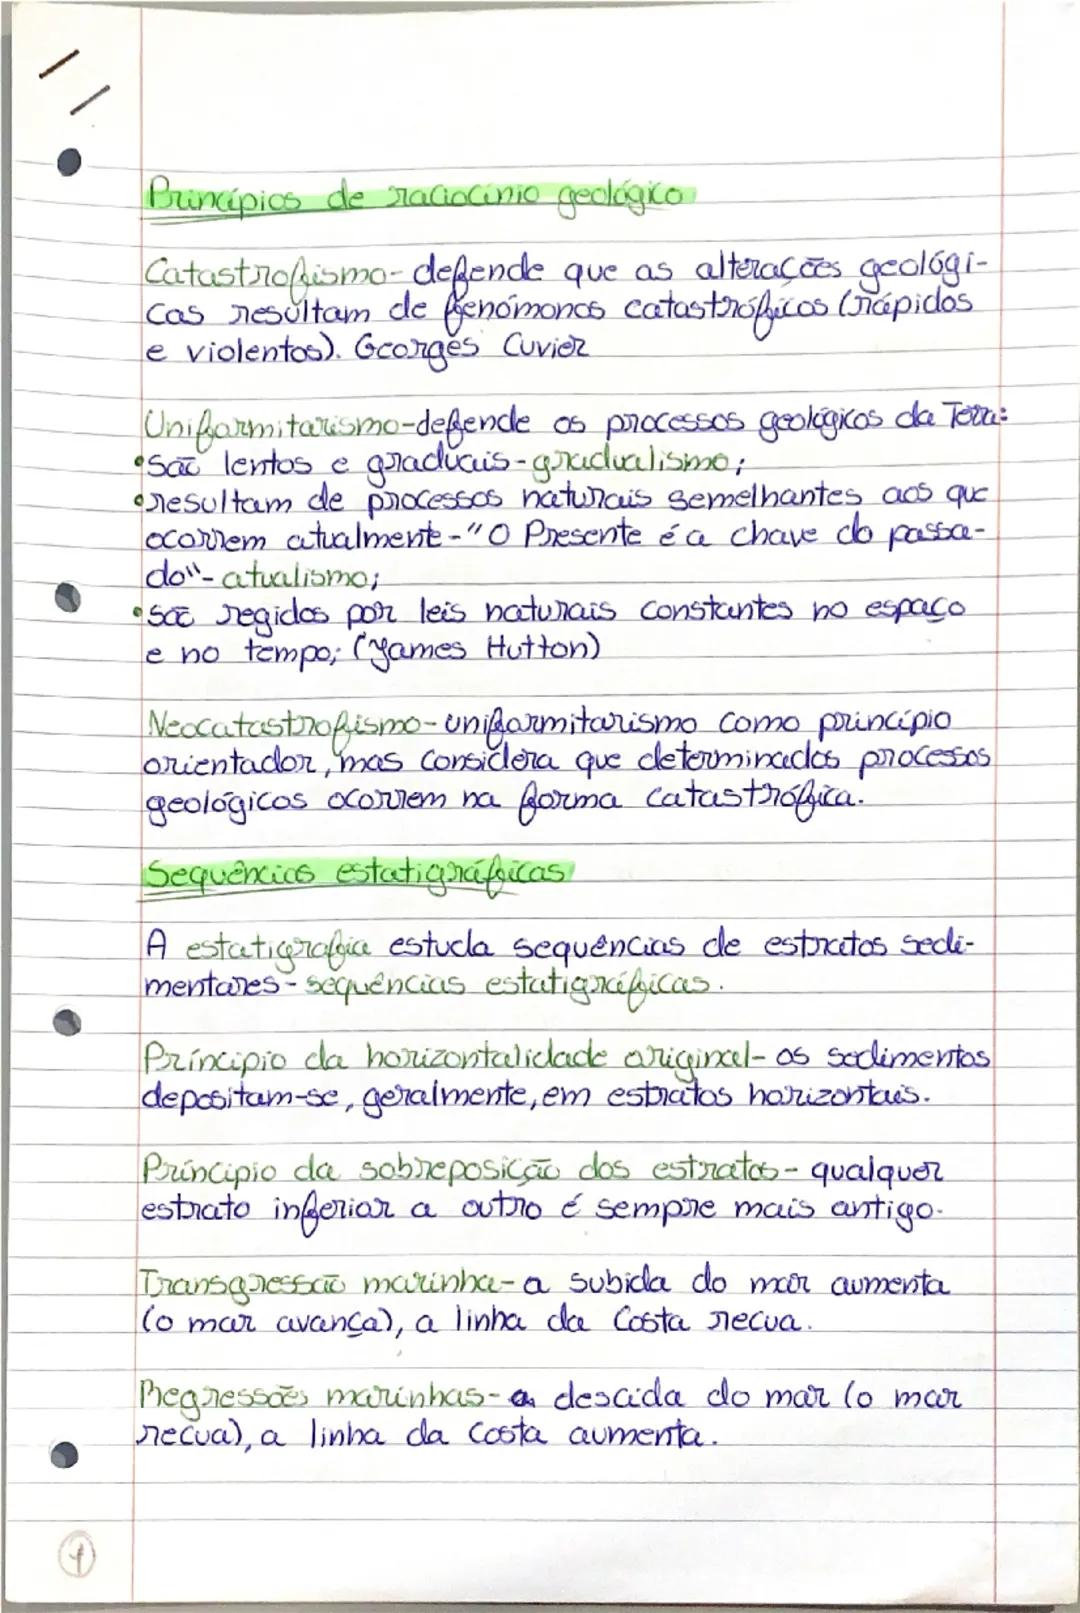 Princípios de raciocínio geológico
Catastrofismo- defende que as alterações geológi-
cas resultam de fenómonos catastróficos (rápidos
e violentos). Georges Cuvier
Uniformitarismo-defende os processos geológicos da Terra:
•São lentos e graduais-gradualismo;
•resultam de processos naturais semelhantes aos que
ocorrem atualmente-"O Presente é a chave do passa-
do"-atualismo;
•São regidos por leis naturais constantes no espaço
e no tempo; (James Hutton)
Neocatastrofismo-uniformitarismo como princípio
orientador, mas considera que determinados processos
geológicos ocorrem na forma catastrófica.
Sequências estatigráficas
A estatigrafia estuda sequências de estratos sedi-
mentares-sequências estatigráficas.
Príncipio da horizontalidade original- os sedimentos
depositam-se, geralmente, em estratos horizontais.
Príncipio da sobreposição dos estratos- qualquer
estrato inferior a outro é sempre mais antigo.
Transgressão marinha-a subida do mar aumenta
(o mar avança), a linha da Costa recua.
Regressões marinhas-a descida do mar (o mar
recua), a linha da Costa aumenta.
1